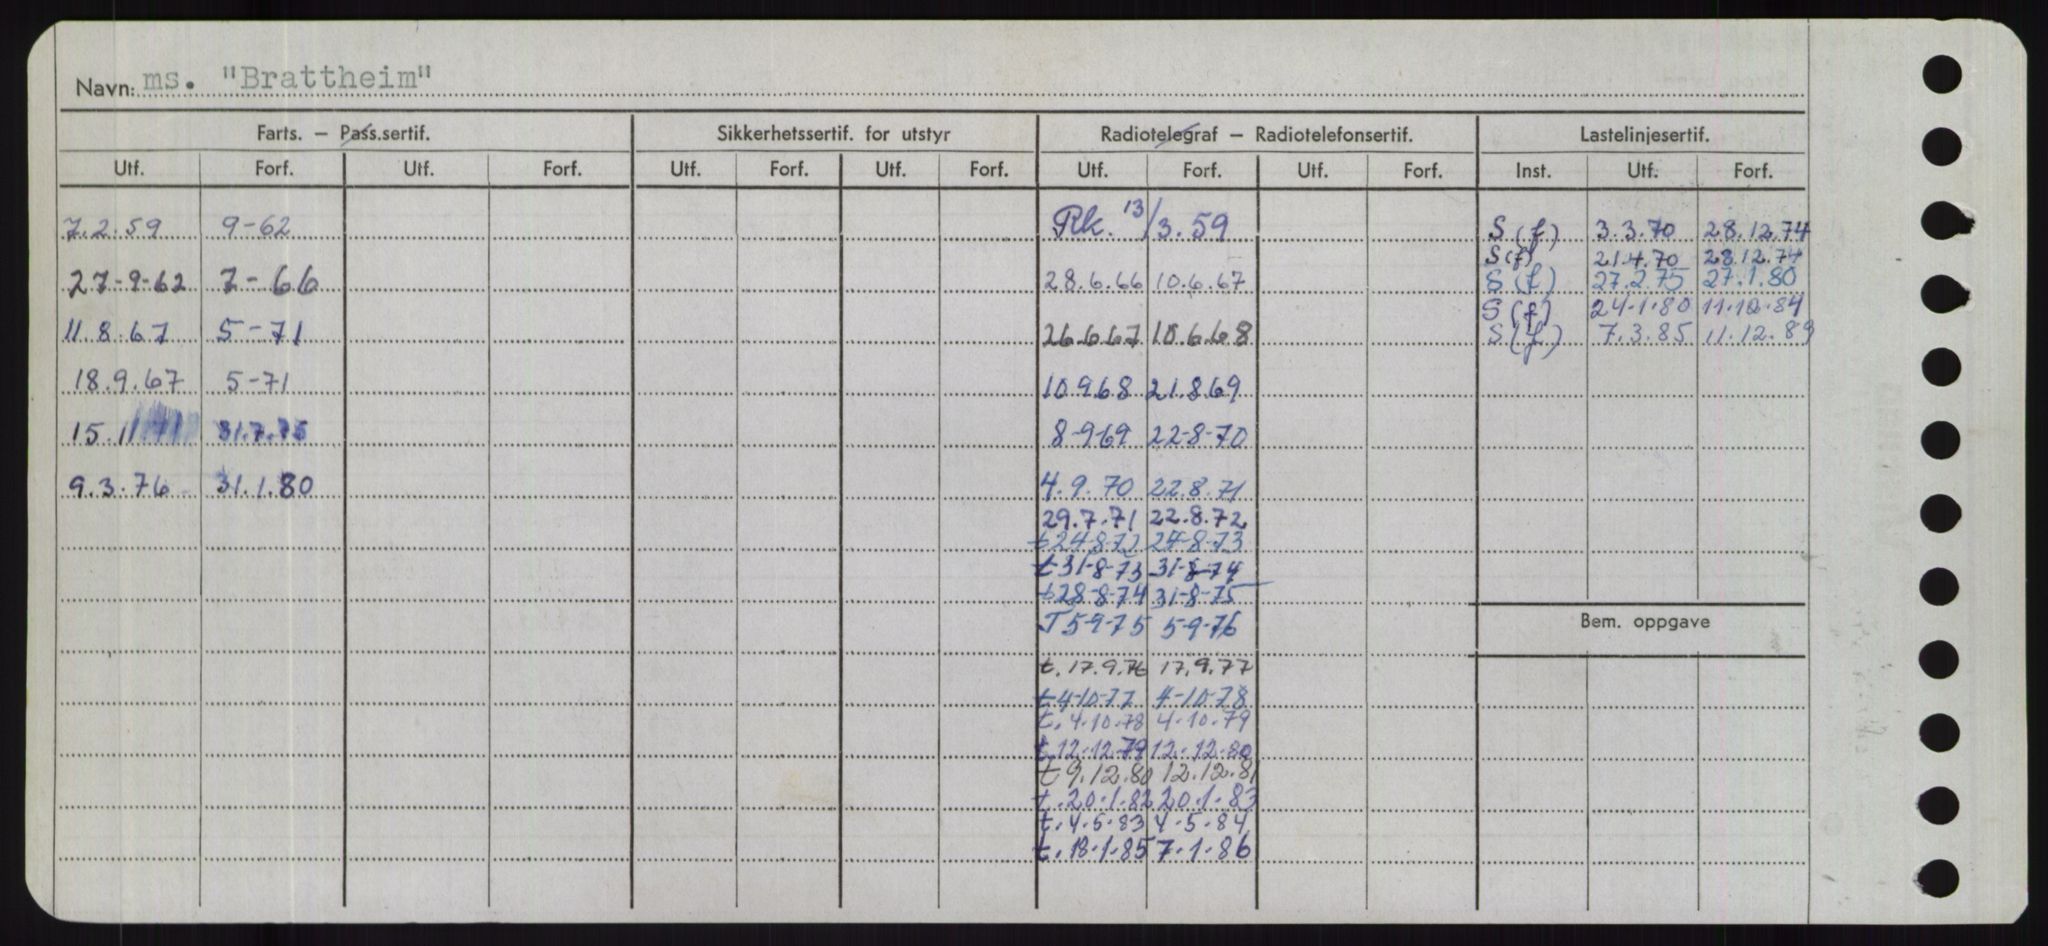 Navn: ms. "Brattheim"
Farts. – Pass.sertif. Sikkerhetssertif. for utstyr Radiotelegraf – Radiotelefonsertif. Lastelinjesertif.
Utf. Forf. Utf. Forf. Utf. Forf. Utf. Forf. Utf. Forf. Utf. Forf. Inst. Utf. Forf.
7.2.59 9-62 Rk. 13/3.59 S(f) 3.3.70 28.12.74
S(f) 21.4.70 28.12.74
27-9-62 7-66 28.6.66 10.6.67 S(f) 27.2.75 27.1.80
S(f) 24.1.80 11.12.84
11.8.67 5-71 26.6.67 10.6.68 S(f) 7.3.85 11.12.89
18.9.67 5-71 10.9.68 21.8.69
15.11 31.7.75 8-9-69 22-8-70
9.3.76 31.1.80 4.9.70 22.8.71
29.7.71 22.8.72
t 24-8-72 24-8-73
t 31-8-73 31-8-74
t 28-8-74 31-8-75
T 5-9-75 5-9-76
Bem. oppgave
t. 17.9.76 17.9.77
t 4-10-77 4-10-78
t. 4.10.78 4.10.79
t. 12.12.79 12.12.80
t 9.12.80 12.12.81
t. 20.1.82 20.1.83
t. 4.5.83 4.5.84
t. 18.1.85 7.1.86